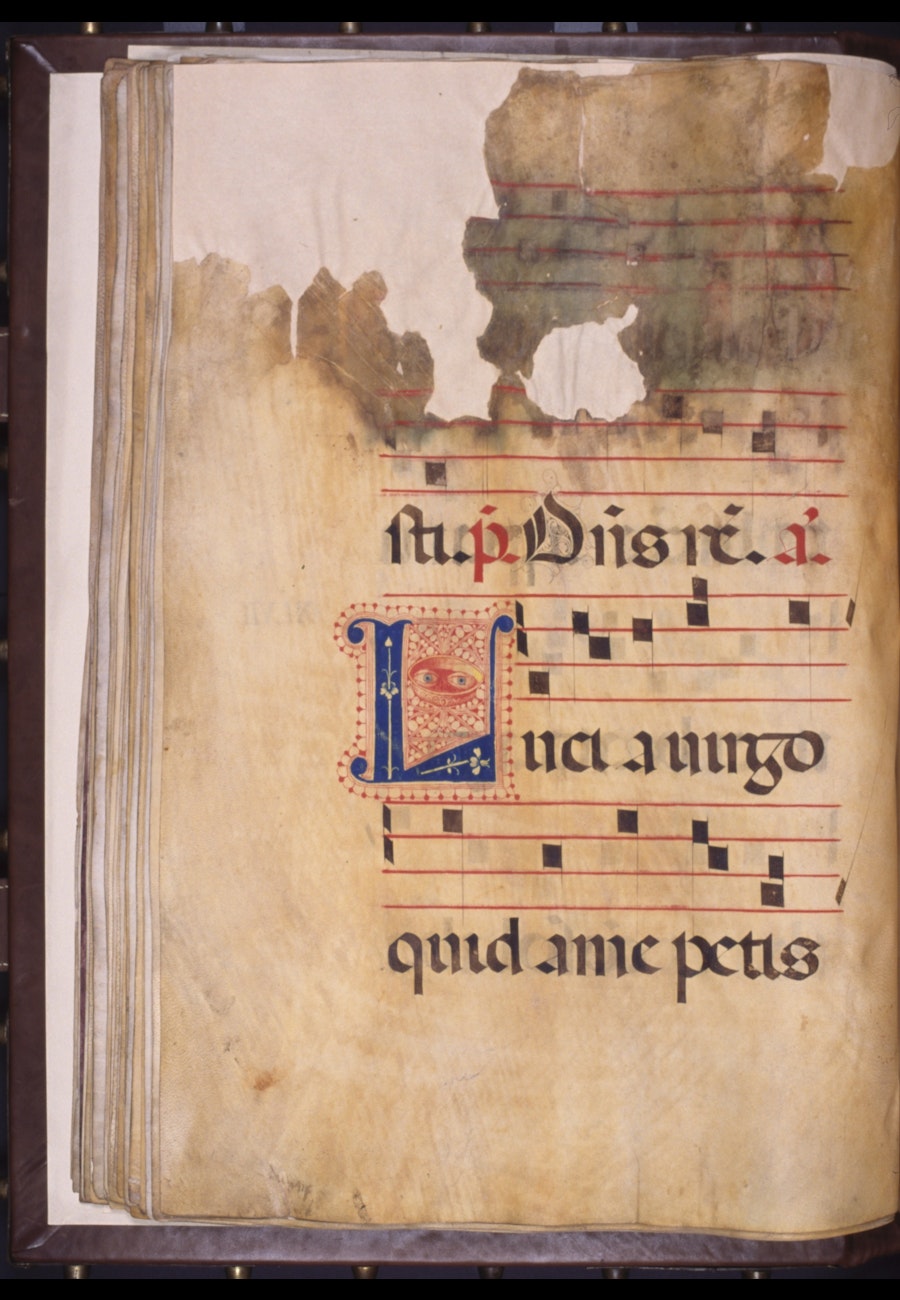 sti. p̄. Dn̄s rē. a᷎.
Lucia uirgo
quid a me petis